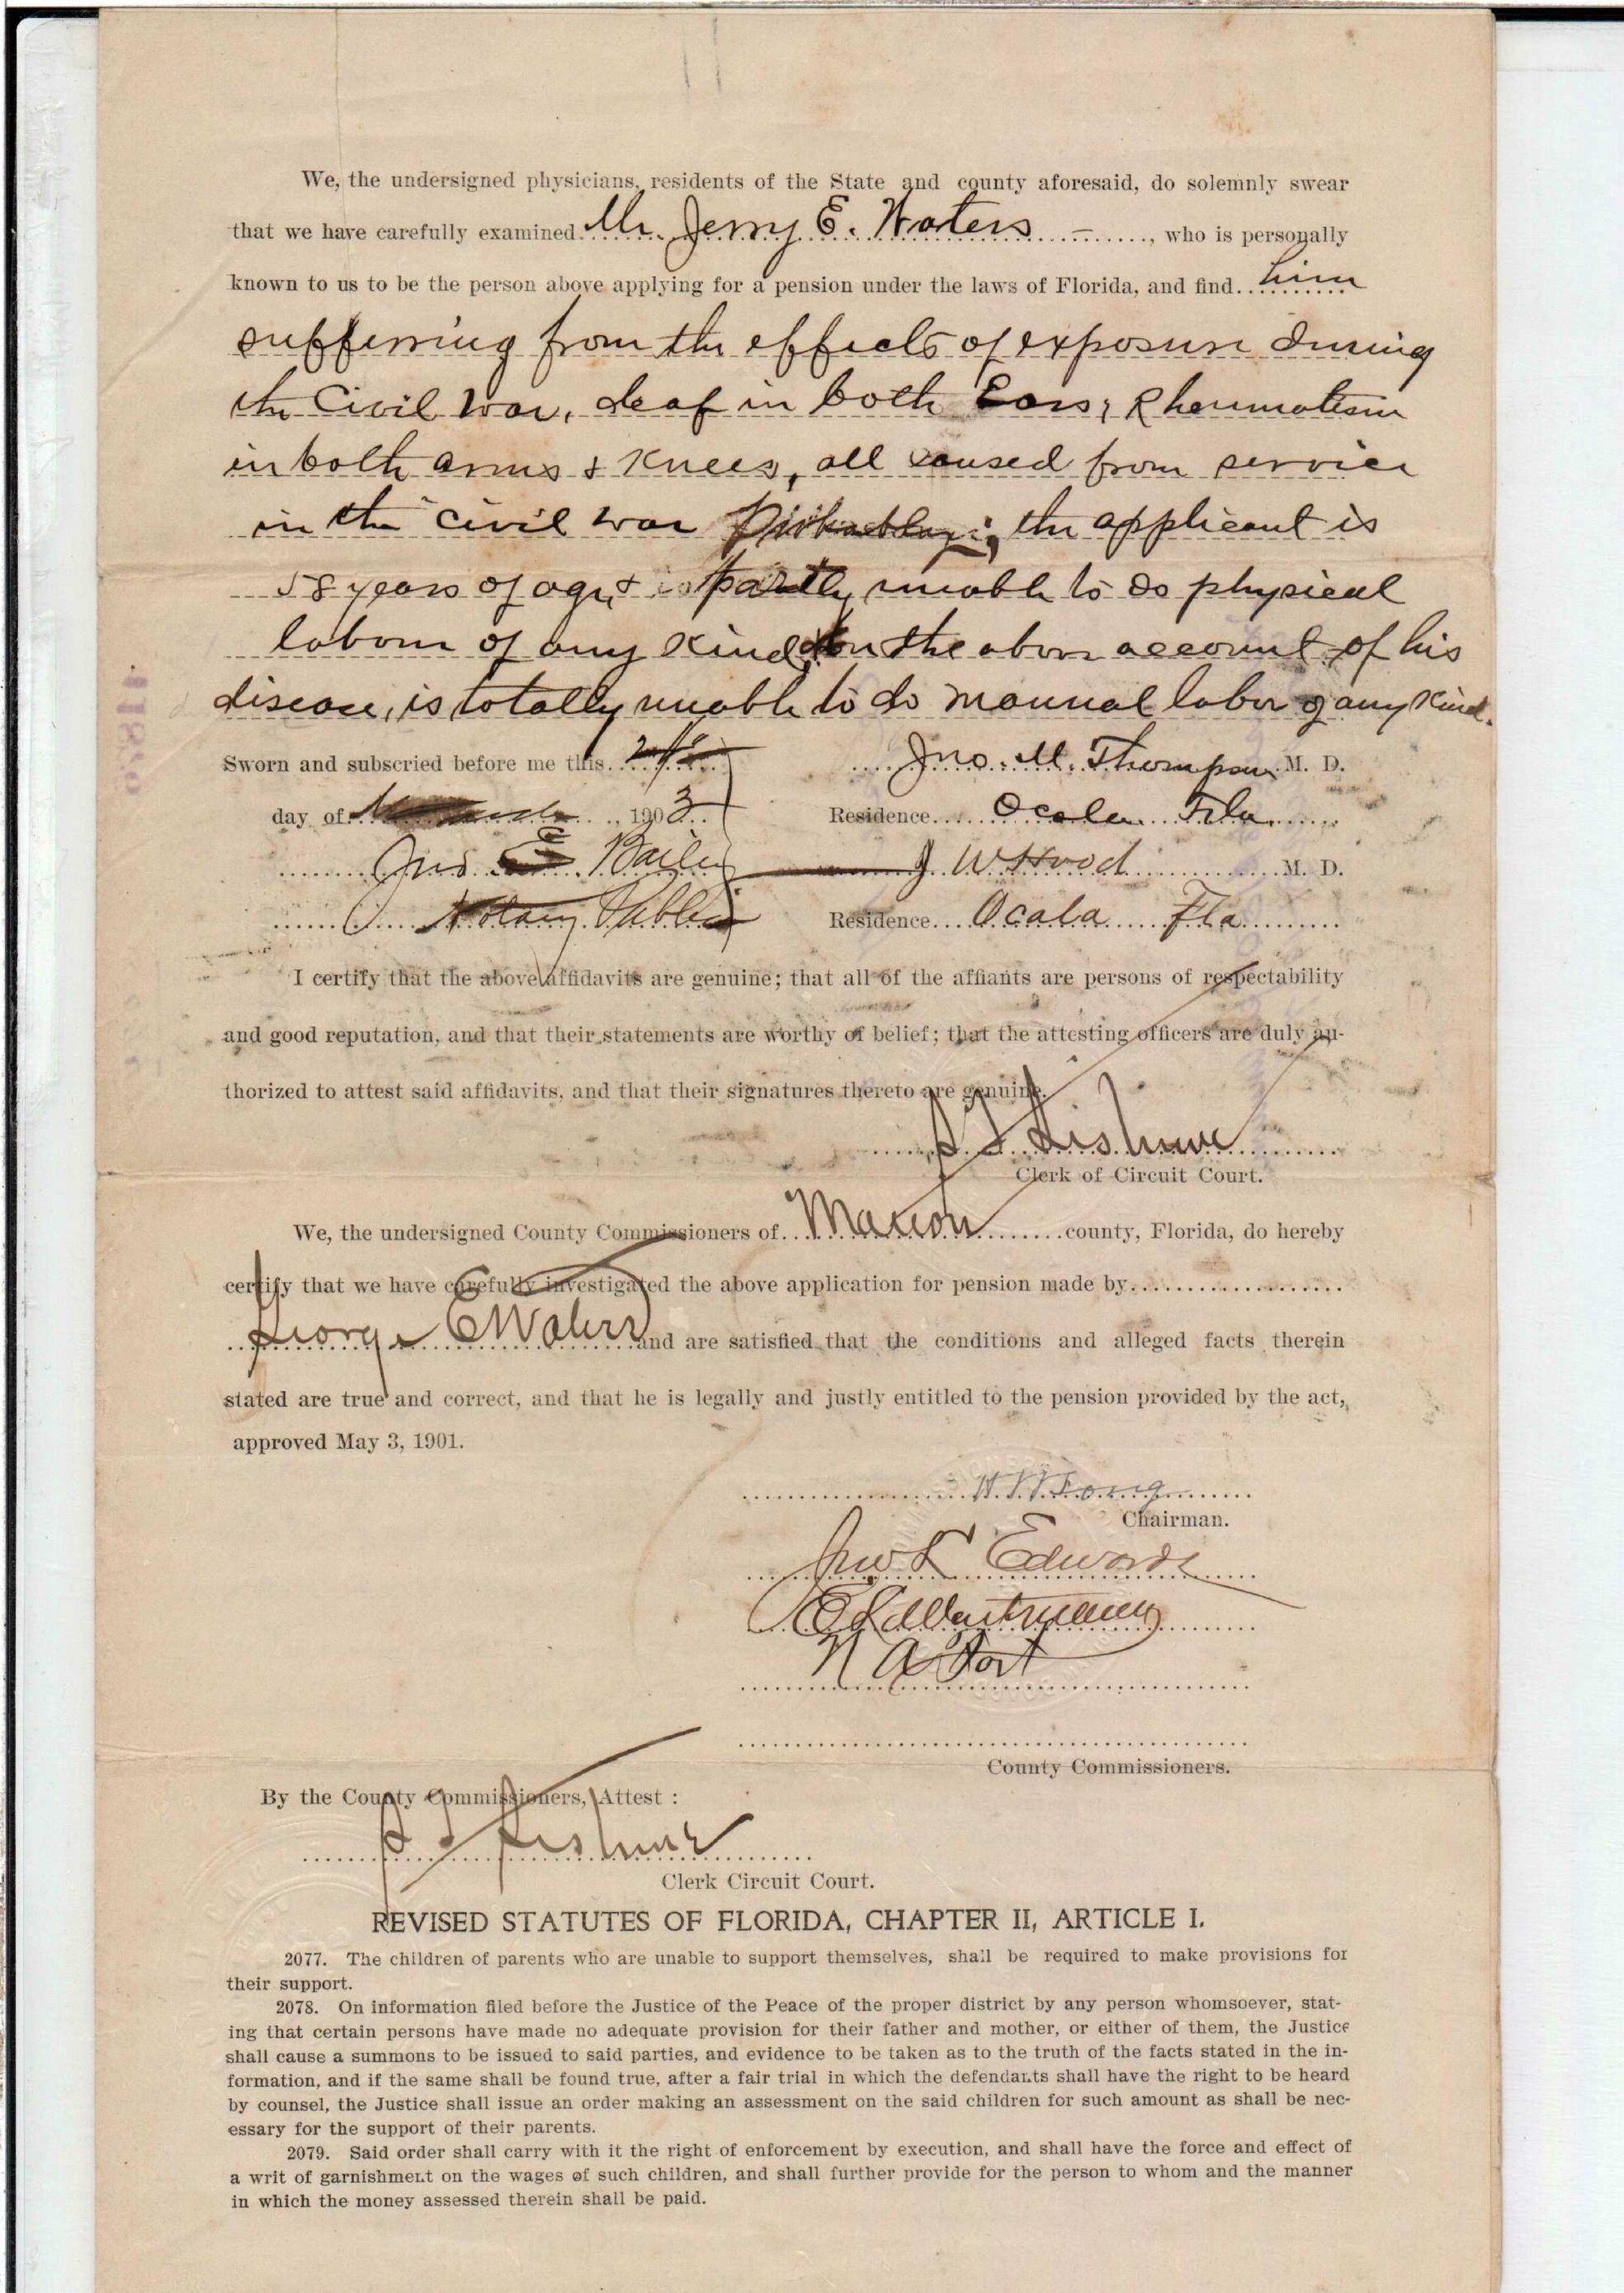 We, the undersigned physicians, residents of the State and county aforesaid, do solemnly swear
that we have carefully examined Mr. Jerry E. Waters, who is personally
known to us to be the person above applying for a pension under the laws of Florida, and find him
sufferring from the effects of exposure during
the Civil War, deaf in both Ears, Rheumatism
in both arms & Knees, all caused from service
in the civil war ; the applicant is
58 years of age, & is partly unable to do physical
labour of any kind, on the above account of his
disease, is totally unable to do manual labor of any kind.
Sworn and subscried before me this
Jno. M. Thompson M. D.
day of 1903
Residence Ocala Fla.
Jno E Bailey
J W Wood M. D.
Notary Public
Residence Ocala Fla
I certify that the above affidavits are genuine; that all of the affiants are persons of respectability
and good reputation, and that their statements are worthy of belief; that the attesting officers are duly au-
thorized to attest said affidavits, and that their signatures thereto are genuine.
Clerk of Circuit Court.
We, the undersigned County Commissioners of Marion county, Florida, do hereby
certify that we have carefully investigated the above application for pension made by
George E Waters and are satisfied that the conditions and alleged facts therein
stated are true and correct, and that he is legally and justly entitled to the pension provided by the act,
approved May 3, 1901.
H. W. Long
Chairman.
Jno L Edwards
N A Fort
County Commissioners.
By the County Commissioners, Attest :
Clerk Circuit Court.
REVISED STATUTES OF FLORIDA, CHAPTER II, ARTICLE I.
2077. The children of parents who are unable to support themselves, shall be required to make provisions for
their support.
2078. On information filed before the Justice of the Peace of the proper district by any person whomsoever, stat-
ing that certain persons have made no adequate provision for their father and mother, or either of them, the Justice
shall cause a summons to be issued to said parties, and evidence to be taken as to the truth of the facts stated in the in-
formation, and if the same shall be found true, after a fair trial in which the defendants shall have the right to be heard
by counsel, the Justice shall issue an order making an assessment on the said children for such amount as shall be nec-
essary for the support of their parents.
2079. Said order shall carry with it the right of enforcement by execution, and shall have the force and effect of
a writ of garnishment on the wages of such children, and shall further provide for the person to whom and the manner
in which the money assessed therein shall be paid.